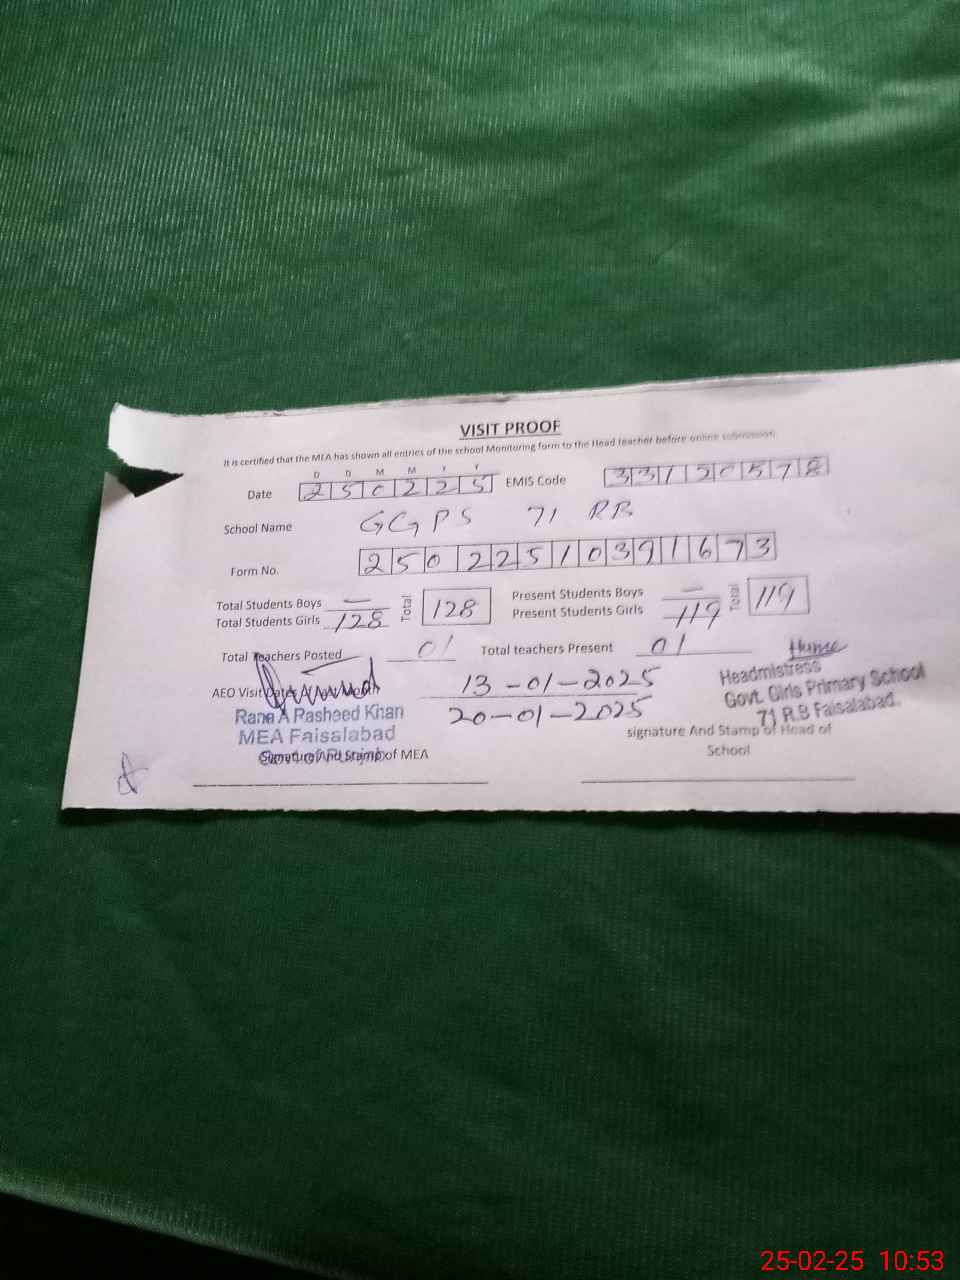 VISIT PROOF
It is certified that the MEA has shown all entries of the school Monitoring form to the Head teacher before online submission
D D M M Y Y
Date 250225 EMIS Code 33120578
School Name GGPS 71 RB
Form No. 25022510391673
Total Students Boys — Total 128 Present Students Boys — Total 119
Total Students Girls 128 Present Students Girls 119
Total Teachers Posted 01 Total teachers Present 01
AEO Visit Dates 13-01-2025
20-01-2025
Rana A Rasheed Khan
MEA Faisalabad
Govt. of Punjab
Signature And Stamp of MEA
Headmistress
Govt. Girls Primary School
71 R.B Faisalabad.
signature And Stamp of Head of
School
25-02-25 10:53